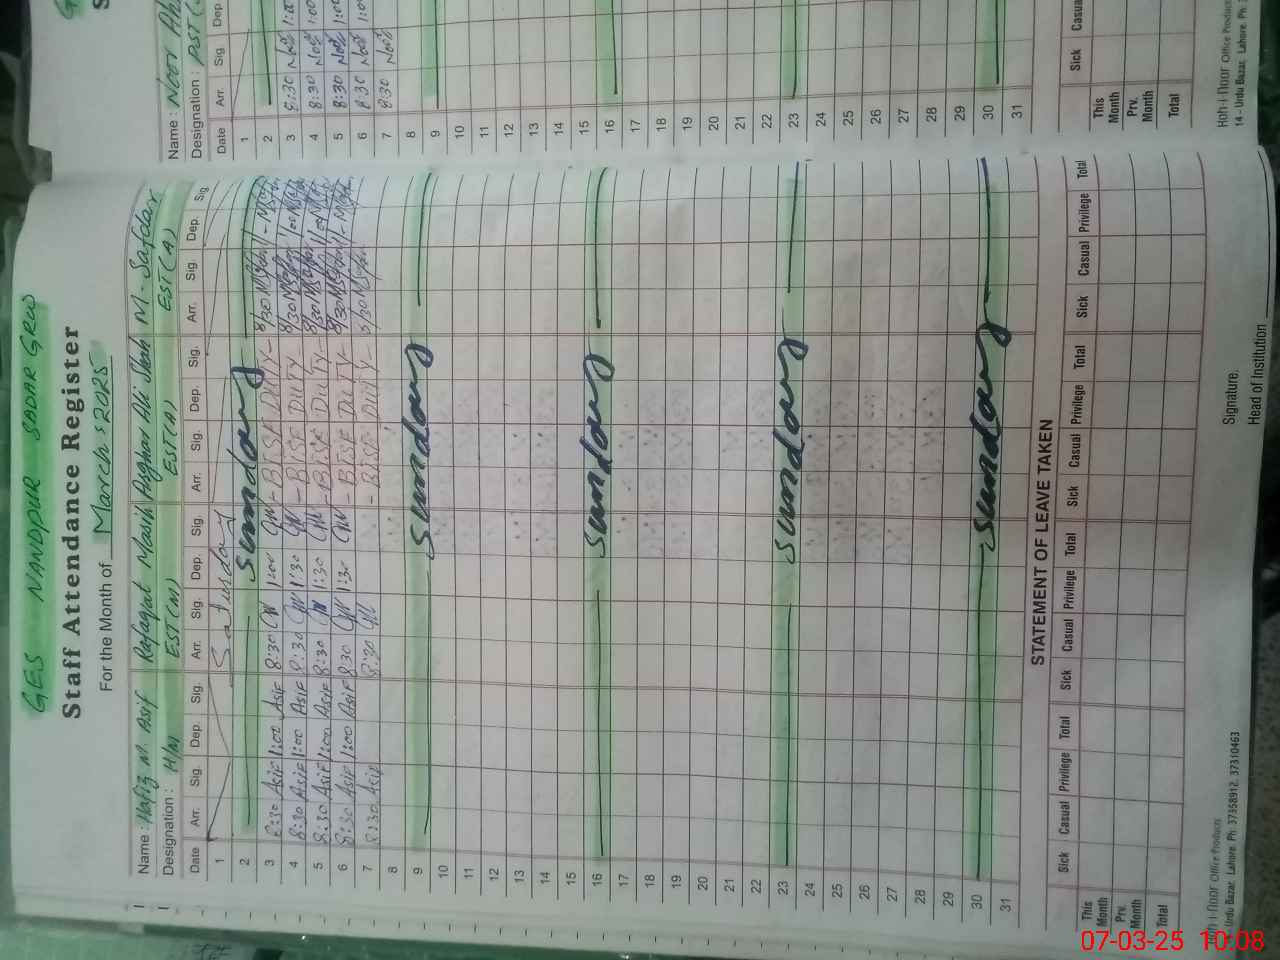 GES NANDPUR SADAR GRW
Staff Attendance Register
For the Month of March s 2025
Name : Hafiz M. Asif Rafaqat Masih Asghar Ali Shah M-Safdar
Designation : H/M EST(M) EST(A) EST(A)
Date Arr. Sig. Dep. Sig. Arr. Sig. Dep. Sig. Arr. Sig. Dep. Sig. Arr. Sig. Dep. Sig.
1 Saturday
2 Sunday
3 8:30 Asif 1:00 Asif 8:30 1:00 - BISE DUTY - 8/30
4 8:30 Asif 1:00 Asif 8:30 1:30 - BISE DUTY - 8/30
5 8:30 Asif 1:00 Asif 8:30 1:30 - BISE DUTY - 8/30
6 8:30 Asif 1:00 Asif 8:30 1:30 - BISE DUTY - 8/30
7 8:30 Asif 8:30 - BISE DUTY - 8/30
8
9 Sunday
10
11
12
13
14
15
16 Sunday
17
18
19
20
21
22
23 Sunday
24
25
26
27
28
29
30 Sunday
31
STATEMENT OF LEAVE TAKEN
Sick Casual Privilege Total Sick Casual Privilege Total Sick Casual Privilege Total Sick Casual Privilege Total
This Month
Prv. Month
Total
Signature.
Head of Institution
Office Products
Urdu Bazar, Lahore. Ph: 37358912, 37310463
Name : Noor
Designation : PST
Date Arr. Sig. Dep
1
2
3 8:30 Noor 1:00
4 8:30 Noor 1:00
5 8:30 Noor 1:00
6 8:30 Noor 1:0
7 8:30 Noor
8
9
10
11
12
13
14
15
16
17
18
19
20
21
22
23
24
25
26
27
28
29
30
31
Sick Casual
This Month
Prv. Month
Total
Koh-i-Noor Office Products
14 - Urdu Bazar, Lahore. Ph:
07-03-25 10:08